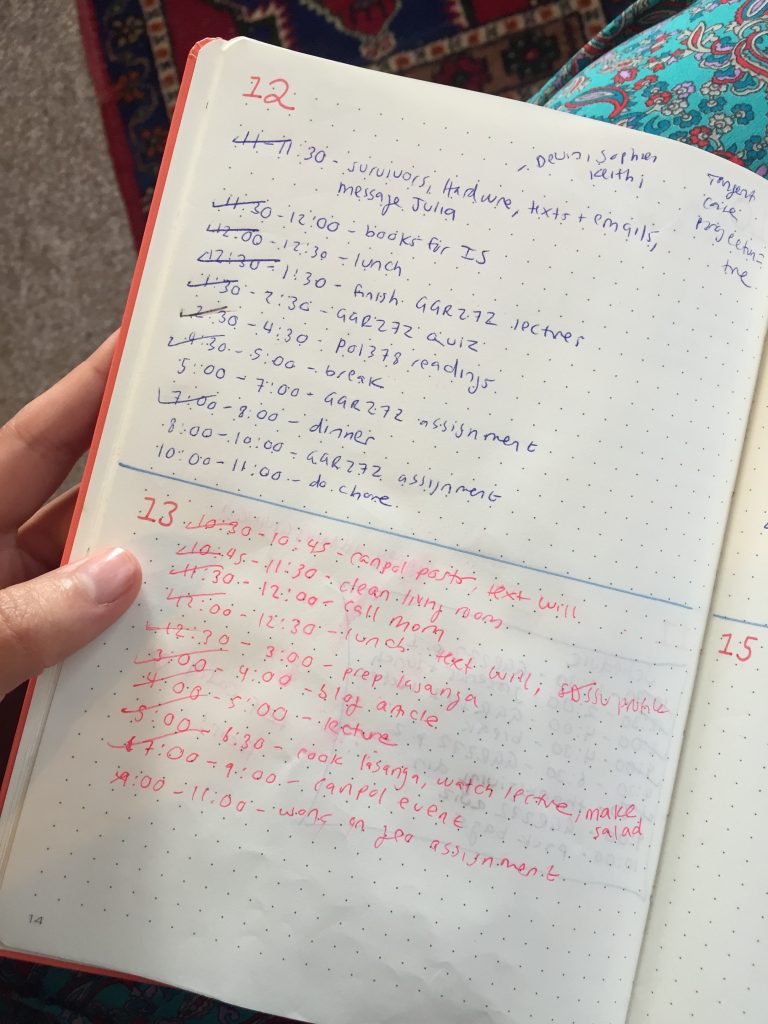 12
11-11:30 - survivors, Hardware, texts + emails,
message Julia
Devin, Sophia
Keith,
Tangent
care
11:30-12:00 - books for IS
12:00-12:30 - lunch
12:30-1:30 - finish GGR272 lectures
1:30-2:30 - GGR272 quiz
2:30-4:30 - POl378 readings
4:30-5:00 - break
5:00-7:00 - GGR272 assignment
7:00-8:00 - dinner
8:00-10:00 - GGR272 assignment
10:00-11:00 - do chore
13
10:30-10:45 - canpol posts, text will
10:45-11:30 - clean living room
11:30-12:00 - call mom
12:00-12:30 - lunch text will, profile
12:30-3:00 - prep lasanga
3:00-4:00 - blog article
4:00-5:00 - lecture
5:00-6:30 - cook lasanga, watch lecture, make
salad
7:00-9:00 - canpol event
9:00-11:00 - work on geo assignment
15
14